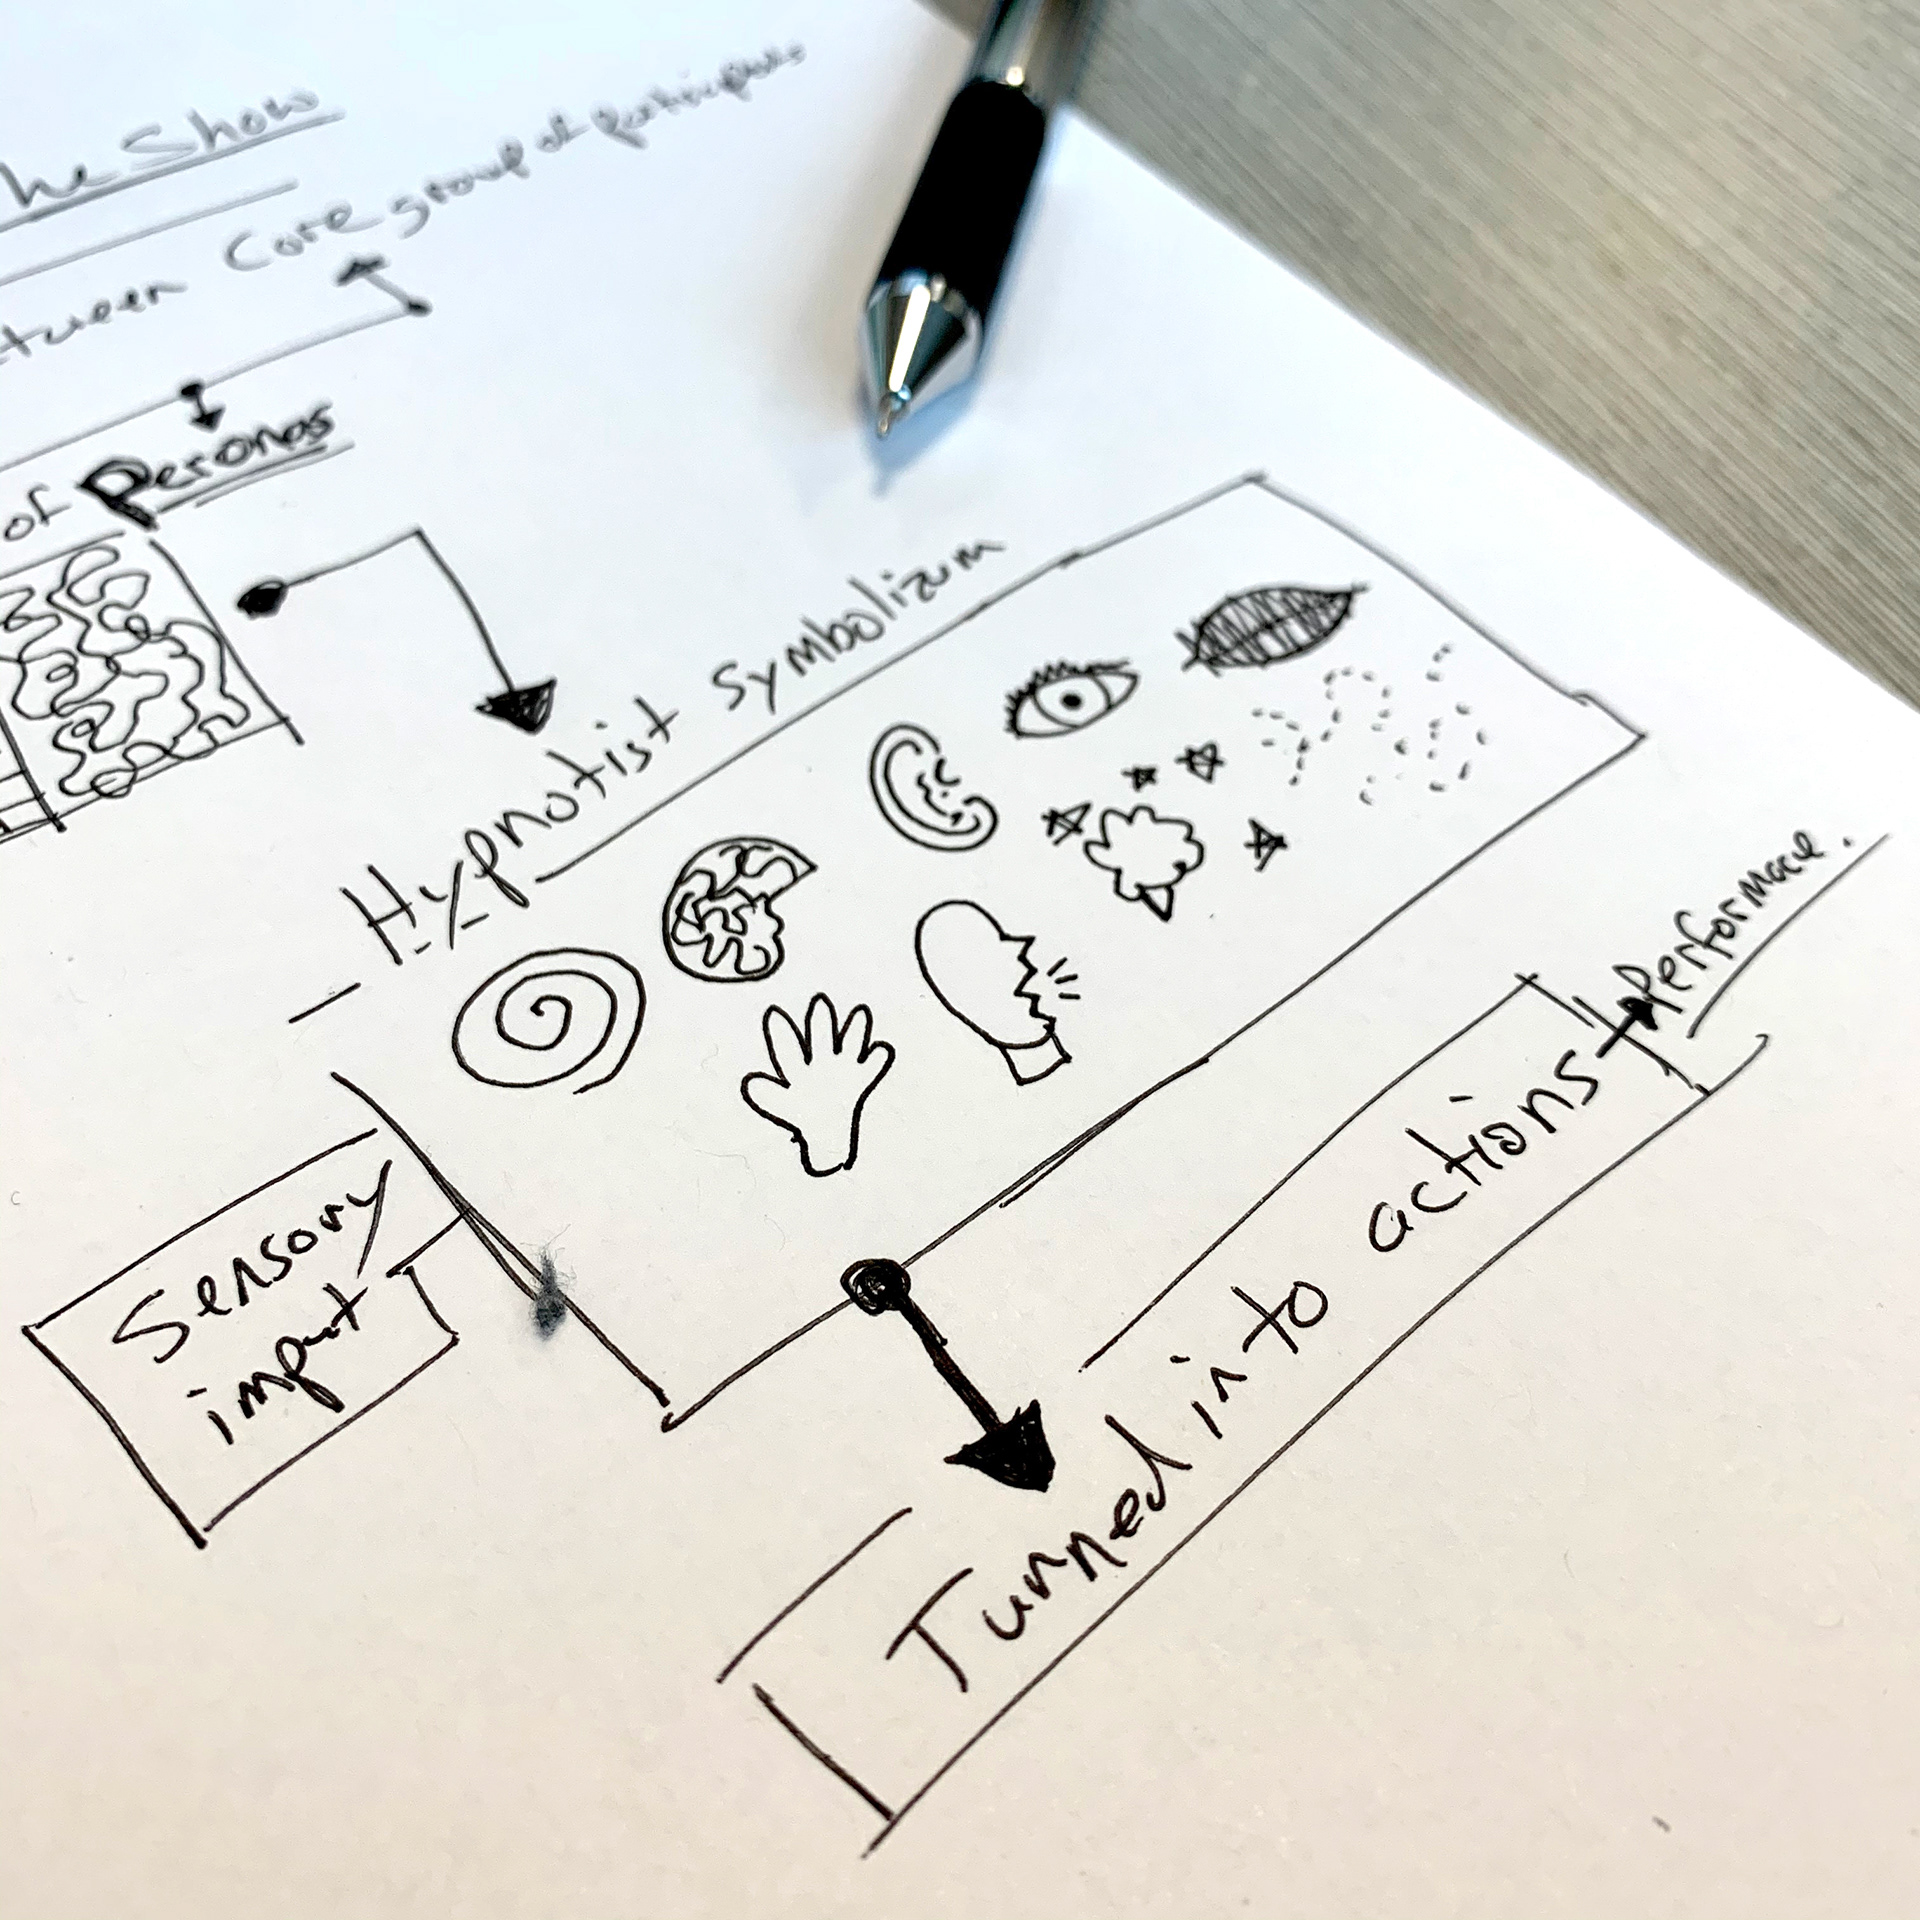 he Show
tween Core group of participants
of Personas
Hypnotist Symbolizum
Sensory
input
Turned into actions
Performace.